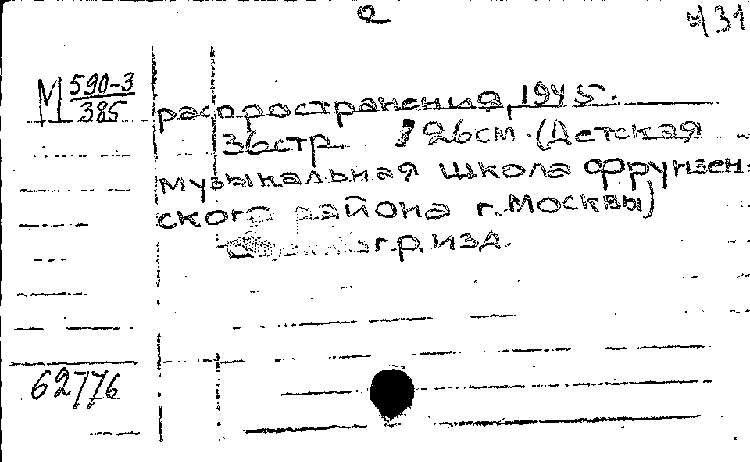 2
431
М 590-3
385
распространения, 1945.
36 стр. 26 см. (Детская
музыкальная школа Фрунзен-
ского района г. Москвы)
изд.
62776